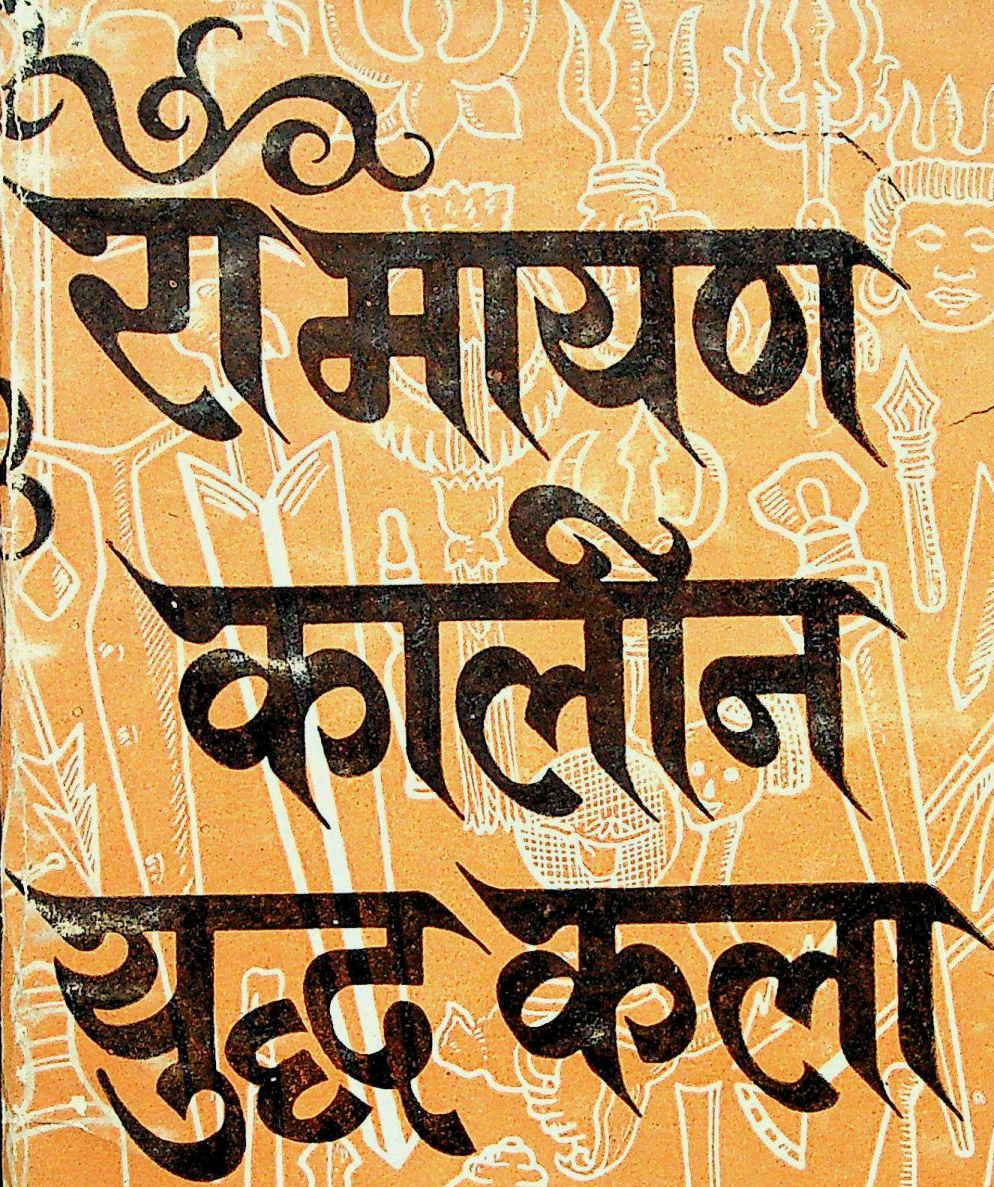 रामायण
कालीन
युद्ध कला